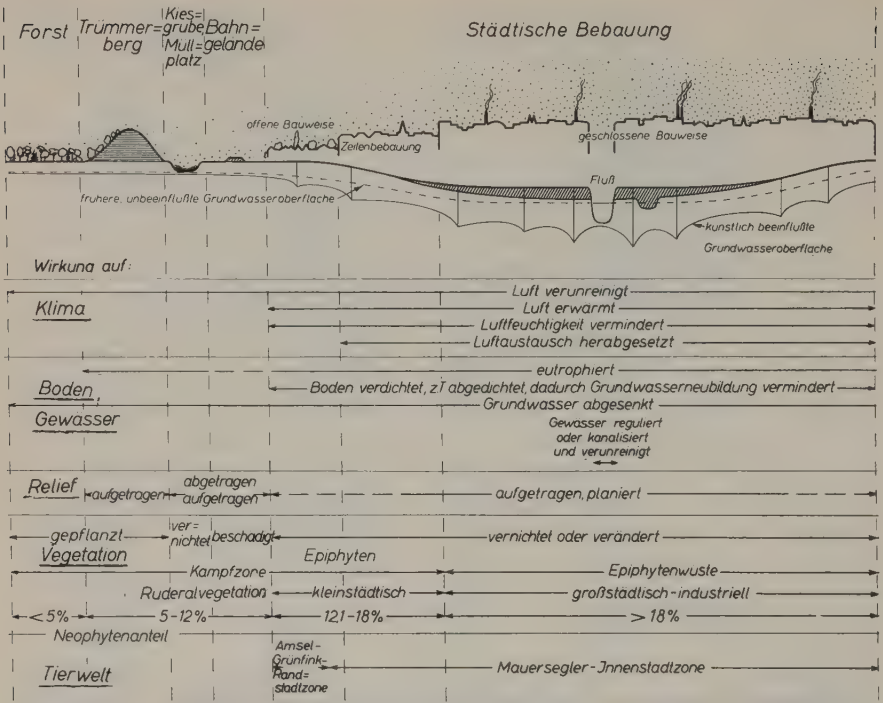 Forst
Trümmer=
berg
Kies=
grube
Müll=
platz
Bahn=
gelande
Städtische Bebauung
offene Bauweise
Zeilenbebauung
geschlossene Bauweise
Fluß
fruhere, unbeeinflußte Grundwasseroberflache
kunstlich beeinflußte
Grundwasseroberflache
Wirkuna auf:
Klima
Luft verunreinigt
Luft erwärmt
Luftfeuchtigkeit vermindert
Luftaustausch herabgesetzt
Boden,
Gewässer
eutrophiert
Boden verdichtet, z T abgedichtet, dadurch Grundwasserneubildung vermindert
Grundwasser abgesenkt
Gewasser reguliert
oder kanalisiert
und verunreinigt
Relief
aufgetragen
abgetragen
aufgetragen
aufgetragen, planiert
Vegetation
gepflanzt
ver=
nichtet
beschadigt
vernichtet oder verändert
Epiphyten
Kampfzone
Epiphytenwuste
Ruderalvegetation
kleinstädtisch
großstädtisch-industriell
< 5%
5-12%
12,1-18%
> 18%
Neophytenanteil
Tierwelt
Amsel-
Grünfink-
Rand=
stadtzone
Mauersegler-Innenstadtzone